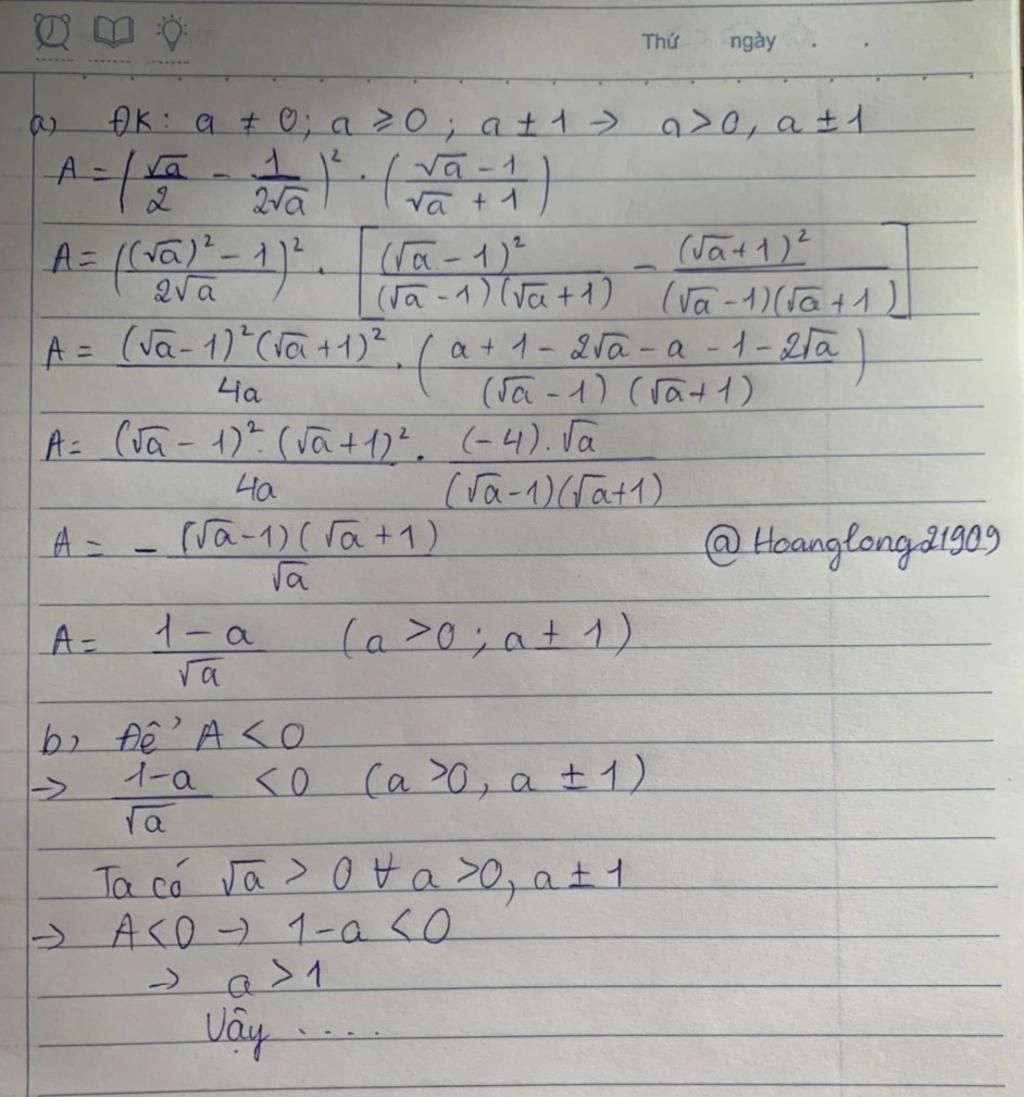 Thứ ngày . .
a) ĐK: a ≠ 0; a ≥ 0; a ± 1 → a > 0, a ± 1
A = (√a/2 - 1/(2√a))² . ((√a - 1)/(√a + 1))
A = (((√a)² - 1)/(2√a))² . [(√a - 1)²/((√a - 1)(√a + 1)) - (√a + 1)²/((√a - 1)(√a + 1))]
A = ((√a - 1)²(√a + 1)²)/(4a) . ((a + 1 - 2√a - a - 1 - 2√a)/((√a - 1)(√a + 1)))
A = ((√a - 1)².(√a + 1)²)/(4a) . ((-4).√a)/((√a - 1)(√a + 1))
A = - ((√a - 1)(√a + 1))/(√a)
@Hoanglong21909
A = (1 - a)/(√a) (a > 0; a ± 1)
b, Để A < 0
→ (1 - a)/(√a) < 0 (a > 0, a ± 1)
Ta có √a > 0 ∀ a > 0, a ± 1
→ A < 0 → 1 - a < 0
→ a > 1
Vậy ....